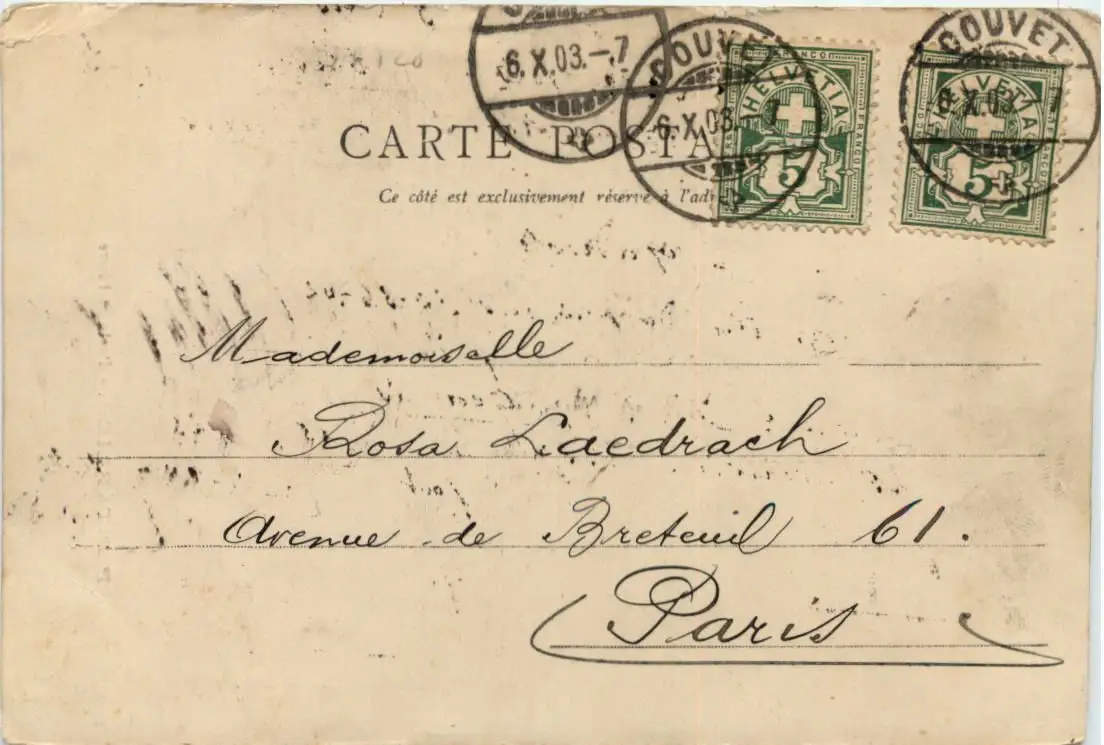 6.X.03.-7
COUVET
6.X.03. 7
FRANCO
HELVETIA
5
COUVET
6.X.03
HELVETIA
FRANCO
5
CARTE POSTA
Ce côté est exclusivement réservé à l'adr
Mademoiselle
Rosa Laedrach
Avenue de Breteuil 61.
Paris